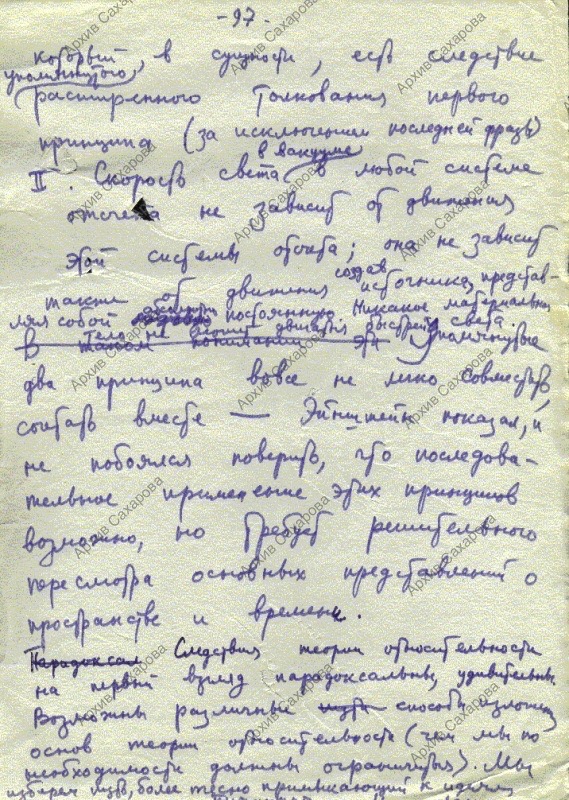 - 97 -
который, в сущности, есть следствие
упомянутого
расширенного толкования первого
принципа (за исключением последней фразы)
в вакууме
II. Скорость света в любой системе
отсчета не зависит от движения
этой системы отсчета; она не зависит
также от движения источника, представ-
ляя собой постоянную. Никакое материальное
тело не может двигаться быстрее света.
В понимании Эти Упомянутые
два принципа вовсе не легко совместить,
сочетать вместе — Эйнштейн показал, и
не побоялся поверить, что последова-
тельное применение этих принципов
возможно, но требует решительного
пересмотра основных представлений о
пространстве и времени.
Парадоксал Следствия теории относительности
на первый взгляд парадоксальны, удивительны.
Возможны различные способы изложения
основ теории относительности (чем мы по
необходимости должны ограничиться). Мы
изберем путь, более тесно примыкающий к идеям
Архив Сахарова